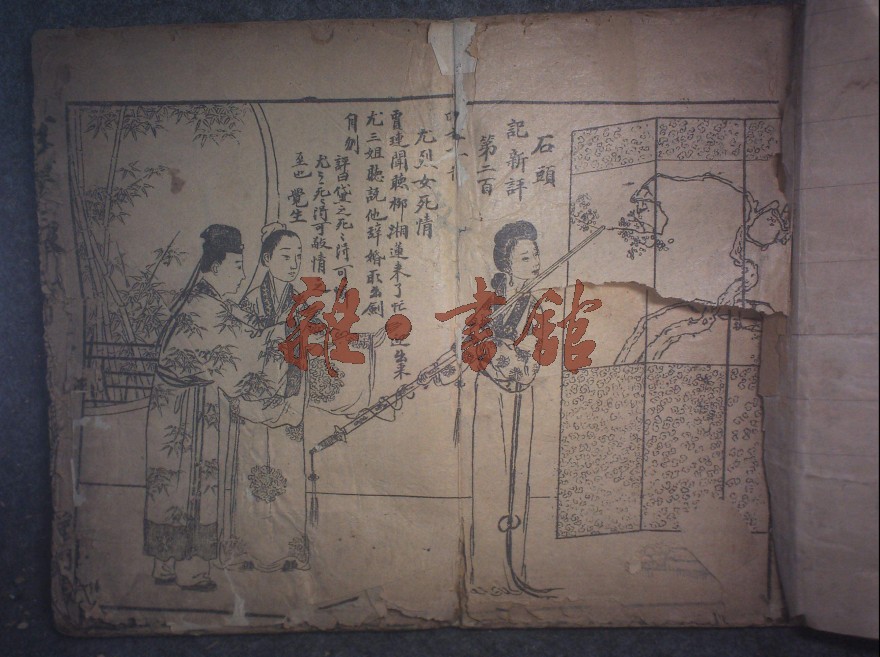 石頭
記新評
第二百
尤烈女死情
賈璉聞聽柳湘蓮来了忙出来
尤三姐聽説他辞婚取出劍
自刎
評曰黛之死之清可
尤之死之清可敬情
至也 覺生
雜·書館